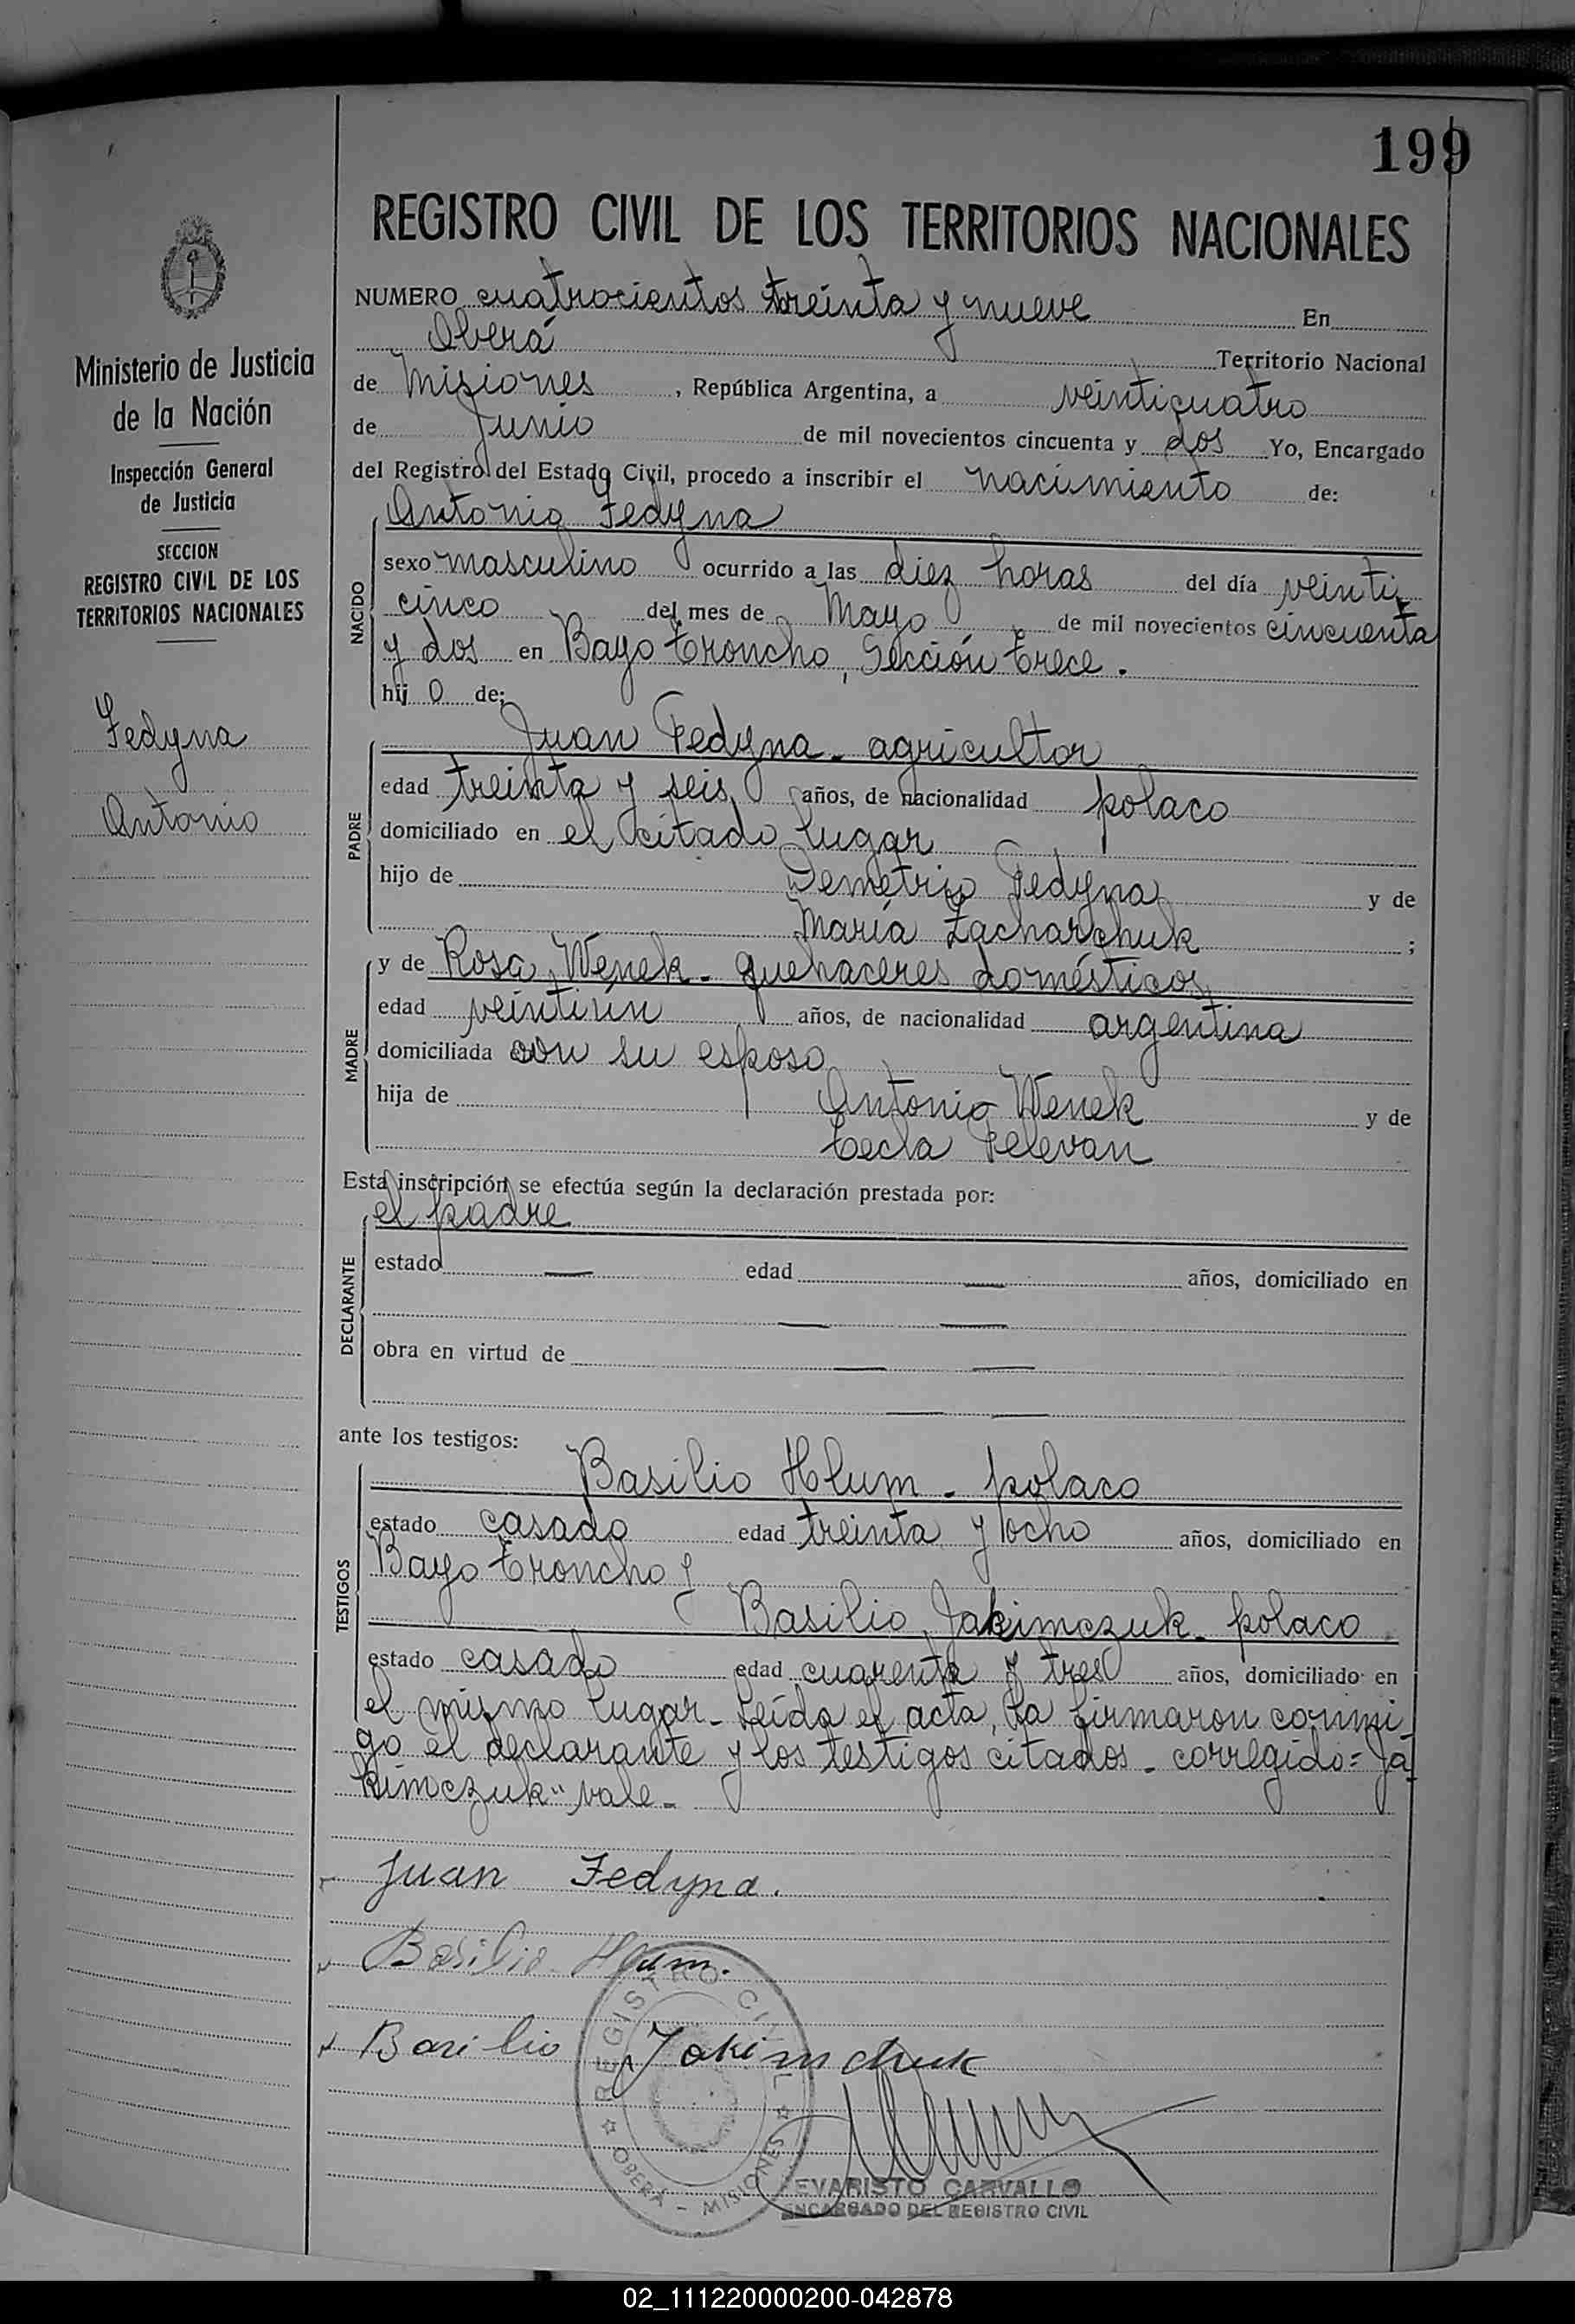 199
REGISTRO CIVIL DE LOS TERRITORIOS NACIONALES
Ministerio de Justicia
de la Nación
Inspección General
de Justicia
SECCION
REGISTRO CIVIL DE LOS
TERRITORIOS NACIONALES
Fedyna
Antonio
NUMERO cuatrocientos treinta y nueve En
Oberá Territorio Nacional
de Misiones, República Argentina, a veinticuatro
de Junio de mil novecientos cincuenta y dos Yo, Encargado
del Registro del Estado Civil, procedo a inscribir el nacimiento de:
Antonio Fedyna
NACIDO
sexo masculino ocurrido a las diez horas del día veinti
cinco del mes de Mayo de mil novecientos cincuenta
y dos en Bayo Troncho, Sección Trece.
hijo de:
PADRE
Juan Fedyna - agricultor
edad treinta y seis años, de nacionalidad polaco
domiciliado en el citado lugar
hijo de Demetrio Fedyna y de
María Zacharchuk ;
MADRE
y de Rosa Wenek - quehaceres domésticos
edad veintiún años, de nacionalidad argentina
domiciliada con su esposo
hija de Antonio Wenek y de
Tecla Pelevan
Esta inscripción se efectúa según la declaración prestada por:
DECLARANTE
el padre
estado — edad — años, domiciliado en
— —
obra en virtud de — —
— —
ante los testigos:
TESTIGOS
Basilio Hlum - polaco
estado casado edad treinta y ocho años, domiciliado en
Bayo Troncho y
Basilio Jakimczuk - polaco
estado casado edad cuarenta y tres años, domiciliado en
el mismo lugar - Leída el acta, la firmaron conmi-
go el declarante y los testigos citados - corregido= Ja-
kimczuk" vale -
Juan Fedyna.
Basilio Hlum.
Basilio Jakimchuk
REGISTRO CIVIL
OBERÁ - MISIONES
EVARISTO CARVALLO
ENCARGADO DEL REGISTRO CIVIL
02_111220000200-042878